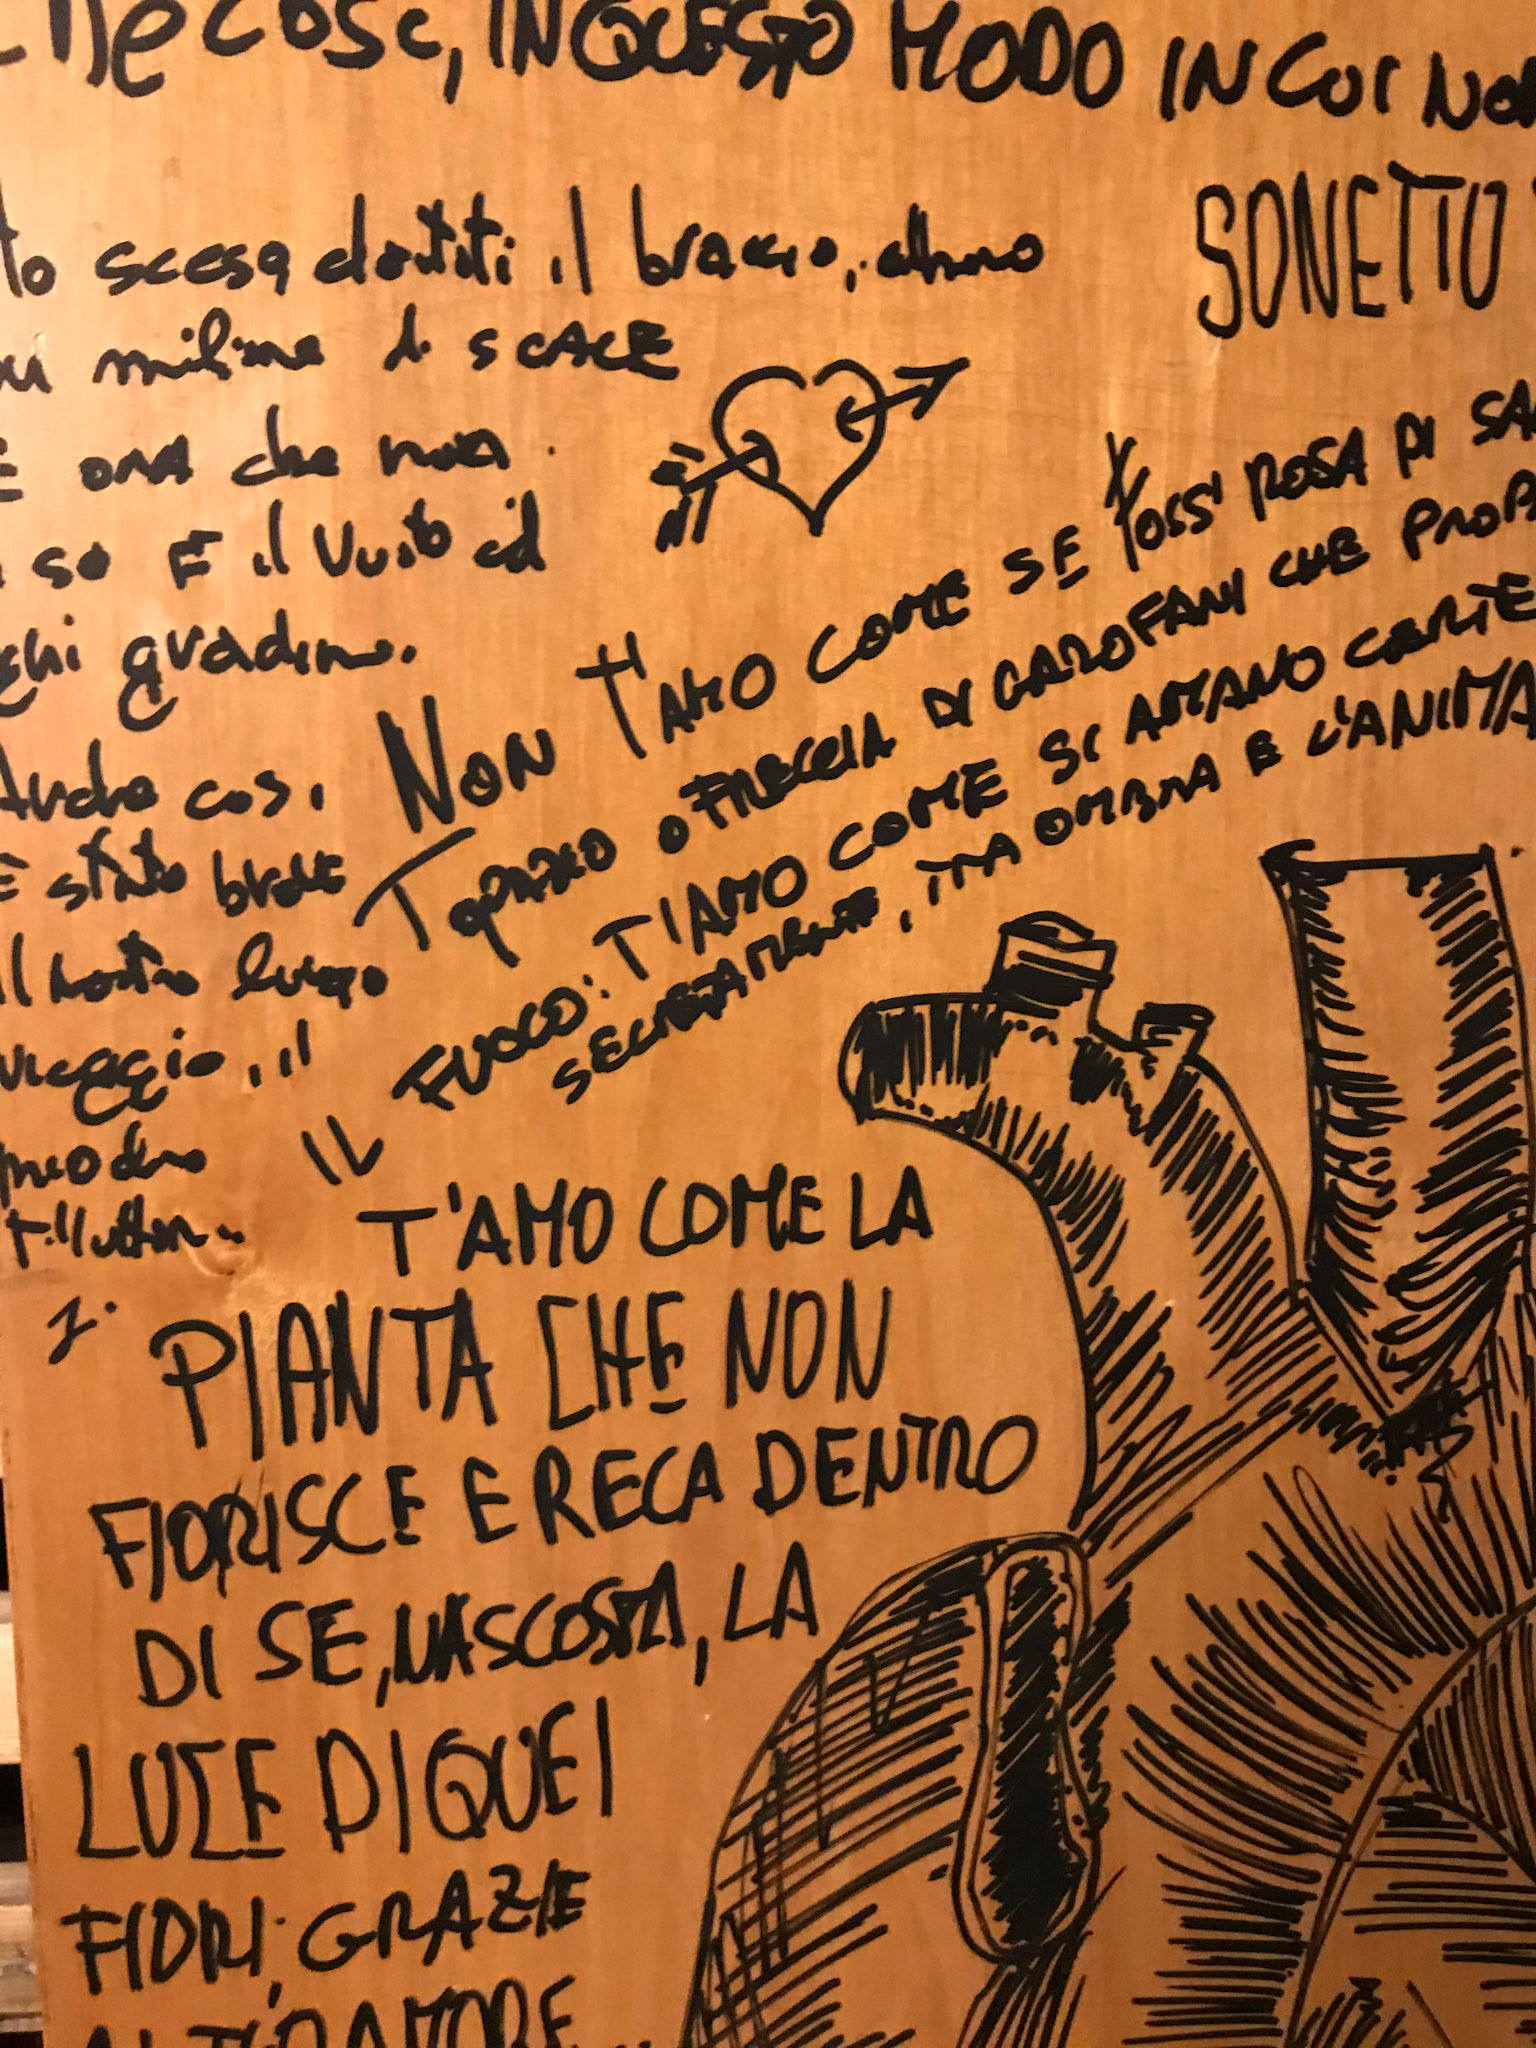 che cose, IN QUESTO MODO IN CUI NON
SONETTO
to scese dandoti il braccio, almeno
un milione di SCALE
E ora che non
so E il vuoto ad
gni gradino.
Anche così
È stato breve
il nostro lungo
viaggio, il
mio
NON T'AMO COME SE FOSSI ROSA DI SA
TOPAZIO O FRECCIA DI GAROFANI CHE PROPA
IL FUOCO: T'AMO COME SI AMANO CERTE
SECRETAMENTE, TRA OMBRA E L'ANIMA
T'AMO COME LA
PIANTA CHE NON
FIORISCE E RECA DENTRO
DI SE, NASCOSTA, LA
LUCE DI QUEI
FIORI; GRAZIE
AL TUO AMORE